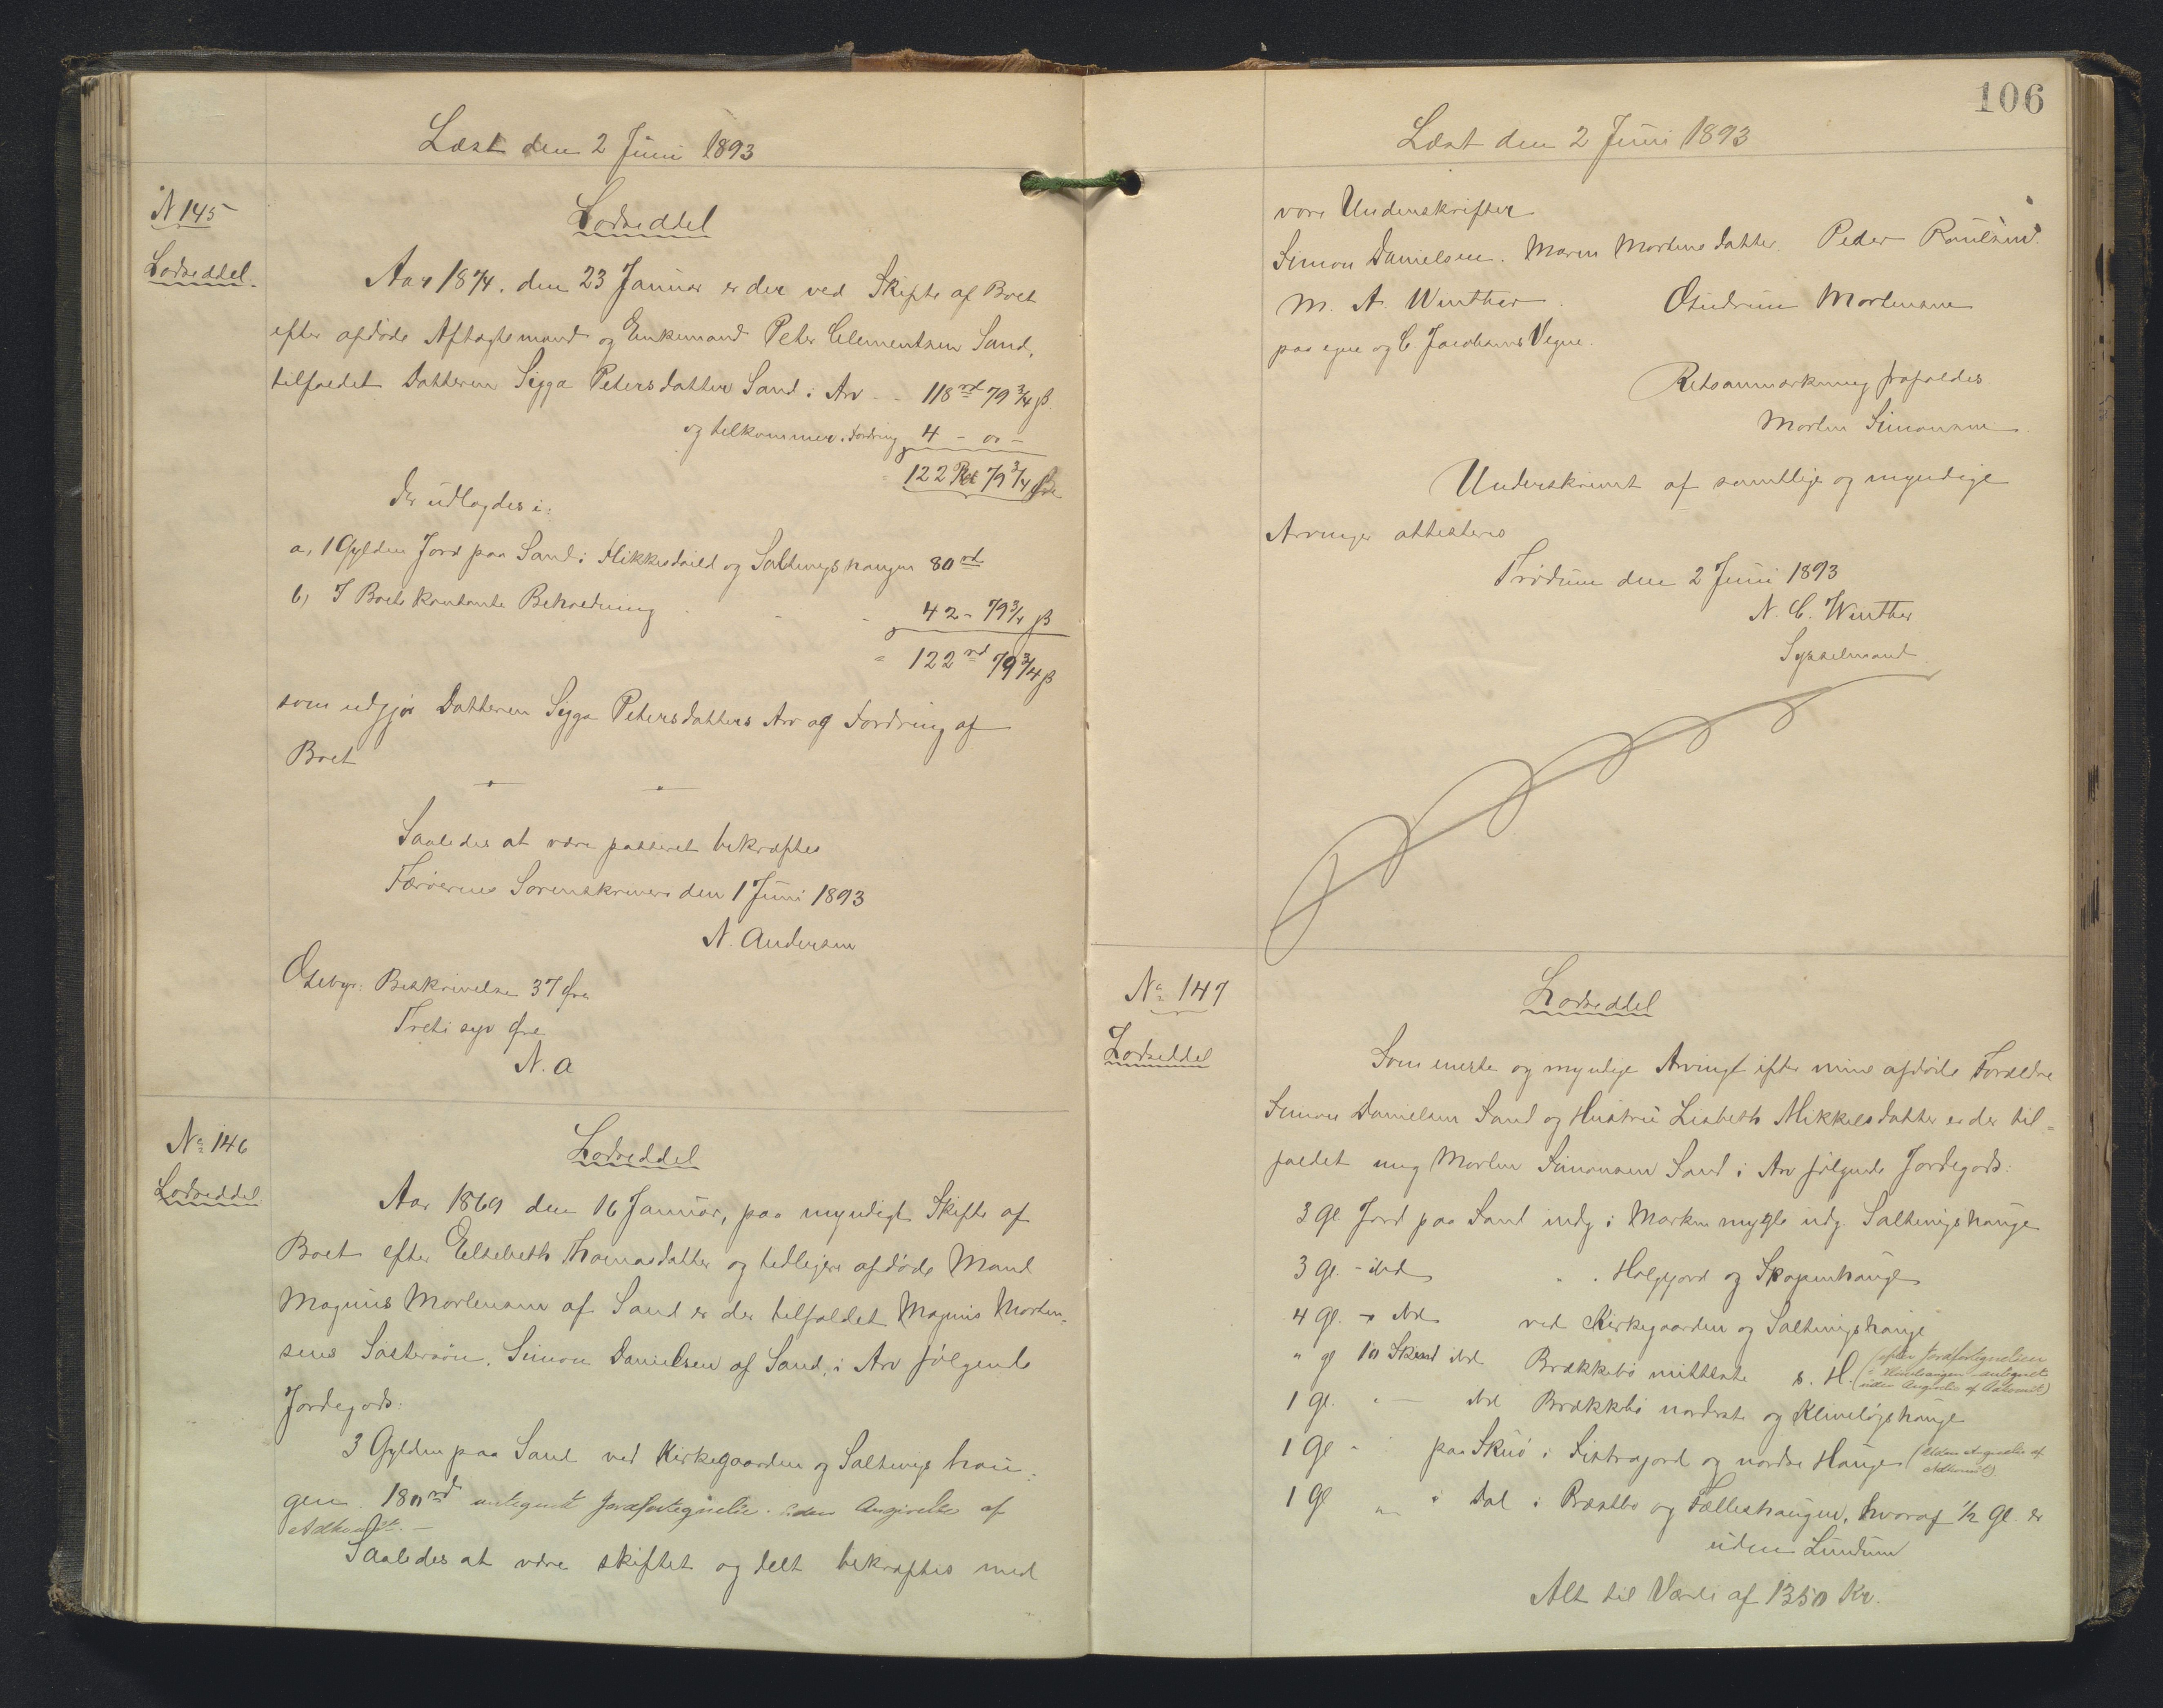 Læst den 2 Juni 1893
N 145
Lodseddel.
Lodseddel
Aar 1874. den 23 Januar er der ved Skifte af Boet
efter afdöde Aftægtsmand og Enkemand Peter Clementsen Sand,
tilfaldet Datteren Sigga Petersdatter Sand i Arv - - 118 rd 79 3/4 ß.
og tilkommer. Fordring 4 - 00 -
= 122 79 3/4
der udlagdes i:
a, 1 Gylden Jord paa Sand: og Saltvigshaugen 80 rd
b) I Boets Kontante Beholdning - - 42 - 79 3/4 ß
= 122 rd 79 3/4 ß
som udgjör Datteren Sigga Petersdatters Arv og Fordring af
Boet
Saaledes at være passeret bekræftes
Færöernes Sorenskriveri den 1 Juni 1893
N. Andersen
Gebyr: Beskrivelse 37 Øre
Treti syv Øre
N. A
No 146
Lodseddel
Lodseddel
Aar 1869 den 16 Januar, paa myndigt Skifte af
Boet efter Elsebeth Thomasdatter og tidligere afdöde Mand
Magnus Mortensen af Sand er der tilfaldet Magnus Morten-
sens Søstersön. Simon Danielsen af Sand, i Arv fölgende
Jordegods:
3 Gylden paa Sand ved Kirkegaarden og Saltvigs hau-
gen. 180 rd antegnet Jordfortegnelse. uden Angivelse af
Adkomst. -
Saaledes at være skiftet og delt bekræftes med
106
Læst den 2 Juni 1893
vore Underskrifter
Simon Danielsen. Maren Mortensdatter. Peder Poulsen.
M. A. Winther. Gudrun Mortensen
paa egne og C. Jacobsens Vegne.
Retsanmærkning frafaldes
Morten Simonsen.
Underskrevet af samtlige og myndige
Arvinger attesteres
Tródum den 2 Juni 1893
N. C. Winther
Sysselmand
No 147
Lodseddel
Lodseddel
Som eneste og myndige Arving efter mine afdöde Forældre
Simon Danielsen Sand og Hustru Lisbeth Mikkelsdatter er der til-
faldet mig Morten Simonsen Sand i Arv fölgende Jordegods:
3 Gl. Jord paa Sand indg i Marken indg. Saltvigshauge
3 Gl. - ibd " . Hølgjord og Skopunhauge
4 Gl. - ibd ved Kirkegaarden og Saltvigshauge
" gl 10 Skind ibd. Brekkebö mitterste s. H. (efter Jordfortegnelsen
antegnet
uden Angivelse af Adkomst)
1 Gl. " - ibd Brekkbö norderste og Kliveløjshauge
1 Gl " " paa Skuö i Fistrajord og nordre Hauge (Uden Angivelse af
Adkomst)
1 Gl " i Dal i Præstbö og Fælleshaugen, hvoraf 1/2 Gl. er
uden Lundum
Alt til Værdi af 1350 Kr.